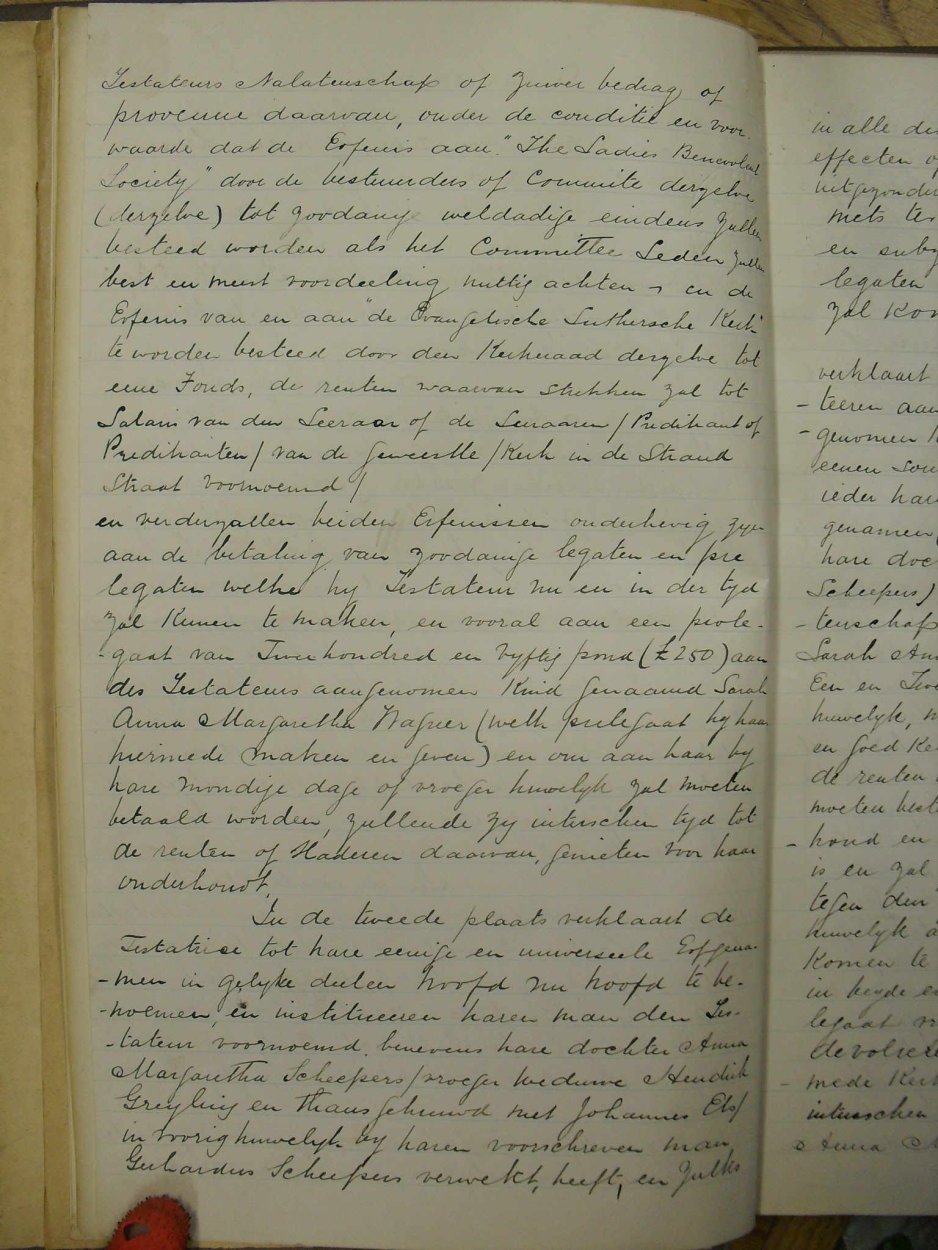 Testateurs Nalatenschap of zuiver bedrag of
provenue daarvan, onder de conditie en voor-
waarde dat de Erfenis aan "The Ladies Benevolent
Society" door de bestuurders of Commite derzelve
(derzelve) tot zoodanige weldadige eindens zullen
besteed worden als het Committee Leden zullen
best en meest voordeelig nuttig achten en de
Erfenis van en aan "de Evangelische Luthersche Kerk"
te worden besteed door den Kerkeraad derzelve tot
eene Fonds, de renten waarvan strekken zal tot
Salaris van den Leeraar of de Leeraaren / Predikant of
Predikanten / van de gemeente / Kerk in de Strand
Straat voornoemd /
en verder zullen beiden Erfenissen onderhevig zyn
aan de betaling van zoodanige legaten en pre
legaten welke hy Testateur nu en in der tyd
zal Kunnen te maken, en vooral aan een prele-
-gaat van Twee hondred en vyftig pond (£250) aan
des Testateurs aangenomen Kind genaamd Sarah
Anna Margaretha Wagner (welk prelegaat hy haar
hiermede maken en geven) en om aan haar by
hare mondige dage of vroeger huwelyk zal moeten
betaald worden, zullende zy interschen tyd tot
de renten of daarvan, genieten voor haar
onderhoudt,
In de tweede plaats verklaart de
Testatrice tot hare eenige en universeele Erfgena-
-men in gelyke deelen hoofd nu hoofd te be-
-noemen, en institueeren haren man den Tes-
-tateur voornoemd, benevens hare dochter Anna
Margaretha Scheepers / vroeger weduwe Hendrik
Greyling en thans gehuwd met Johannes Els /
in voorig huwelyk by haren voorschreven man
Gerhardus Scheepers verwekt, heeft, en zulks
in alle
effecten
uitgezonder
mets tes
en
legaten
zal kon
verklaart
- teeren aan
- genomen K
eenen
ieder har
genamen
hare doc
Scheepers)
- tenschap
Sarah Ann
Een en Twe
huwelyk,
en goed Ke
de renten
moeten best
- houd en
is en zal
tegen den
huwelyk a
Komen te
in beyde
legaat
- mede Kin
interschen
Anna M